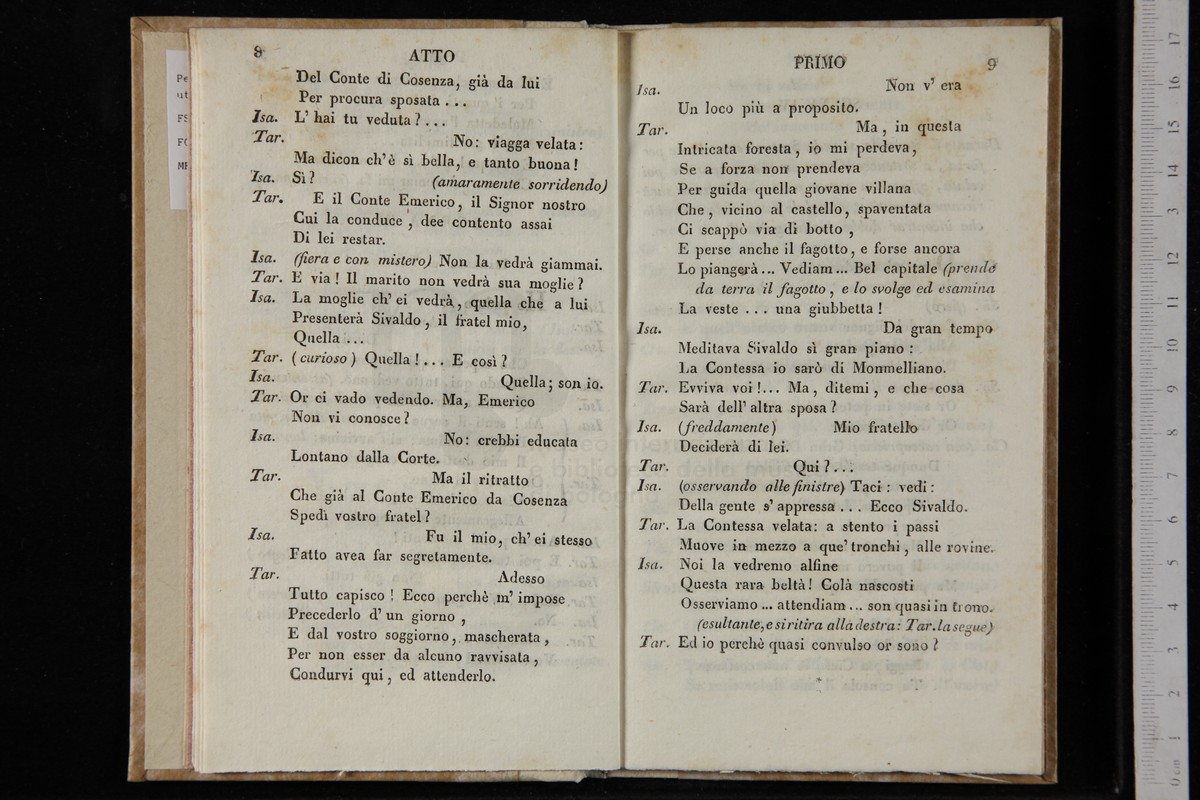 8
ATTO
Del Conte di Cosenza, già da lui
Per procura sposata . . .
Isa. L' hai tu veduta ? . . .
Tar. No: viagga velata:
Ma dicon ch'è sì bella, e tanto buona!
Isa. Sì? (amaramente sorridendo)
Tar. E il Conte Emerico, il Signor nostro
Cui la conduce, dee contento assai
Di lei restar.
Isa. (fiera e con mistero) Non la vedrà giammai.
Tar. E via! Il marito non vedrà sua moglie?
Isa. La moglie ch' ei vedrà, quella che a lui
Presenterà Sivaldo, il fratel mio,
Quella . . .
Tar. (curioso) Quella! . . . E così?
Isa. Quella; son io.
Tar. Or ci vado vedendo. Ma, Emerico
Non vi conosce?
Isa. No: crebbi educata
Lontano dalla Corte.
Tar. Ma il ritratto
Che già al Conte Emerico da Cosenza
Spedì vostro fratel?
Isa. Fu il mio, ch' ei stesso
Fatto avea far segretamente.
Tar. Adesso
Tutto capisco! Ecco perchè m' impose
Precederlo d' un giorno,
E dal vostro soggiorno, mascherata,
Per non esser da alcuno ravvisata,
Condurvi qui, ed attenderlo.
PRIMO
9
Isa. Non v' era
Un loco più a proposito.
Tar. Ma, in questa
Intricata foresta, io mi perdeva,
Se a forza non prendeva
Per guida quella giovane villana
Che, vicino al castello, spaventata
Ci scappò via di botto,
E perse anche il fagotto, e forse ancora
Lo piangerà... Vediam... Bel capitale (prende
da terra il fagotto, e lo svolge ed esamina
La veste . . . una giubbetta!
Isa. Da gran tempo
Meditava Sivaldo sì gran piano:
La Contessa io sarò di Monmelliano.
Tar. Evviva voi!... Ma, ditemi, e che cosa
Sarà dell' altra sposa?
Isa. (freddamente) Mio fratello
Deciderà di lei.
Tar. Qui? . . .
Isa. (osservando alle finistre) Taci: vedi:
Della gente s' appressa . . . Ecco Sivaldo.
Tar. La Contessa velata: a stento i passi
Muove in mezzo a que' tronchi, alle rovine.
Isa. Noi la vedremo alfine
Questa rara beltà! Colà nascosti
Osserviamo ... attendiam ... son quasi in trono.
(esultante, e si ritira alla destra: Tar. la segue)
Tar. Ed io perchè quasi convulso or sono?